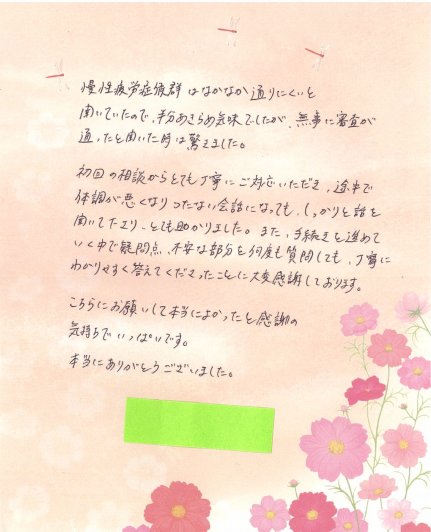 慢性疲労症候群はなかなか通りにくいと
聞いていたので、半分あきらめ気味でしたが、無事に審査が
通ったと聞いた時は驚きました。
初回の相談からとても丁寧にご対応いただき、途中で
体調が悪くなりつたない会話になっても、しっかりと話を
聞いて下さり、とても助かりました。また、手続きを進めて
いく中で疑問点、不安な部分を何度も質問しても、丁寧に
わかりやすく答えてくださったことに大変感謝しております。
こちらにお願いして本当によかったと感謝の
気持ちでいっぱいです。
本当にありがとうございました。